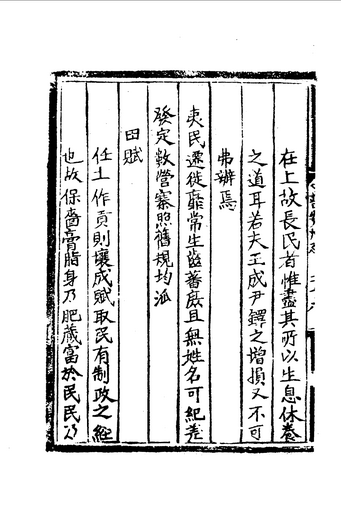 在上故長民者惟盡其所以生息休養
之道耳若夫王成尹鐸之增損又不可
弗辨焉
夷民遷徙靡常生齒蕃房且無姓名可紀差
發定數營寨照舊規均派
田賦
任土作貢則壤成賦取民有制政之經
也故保嗇膏脂身乃肥藏富於民民乃